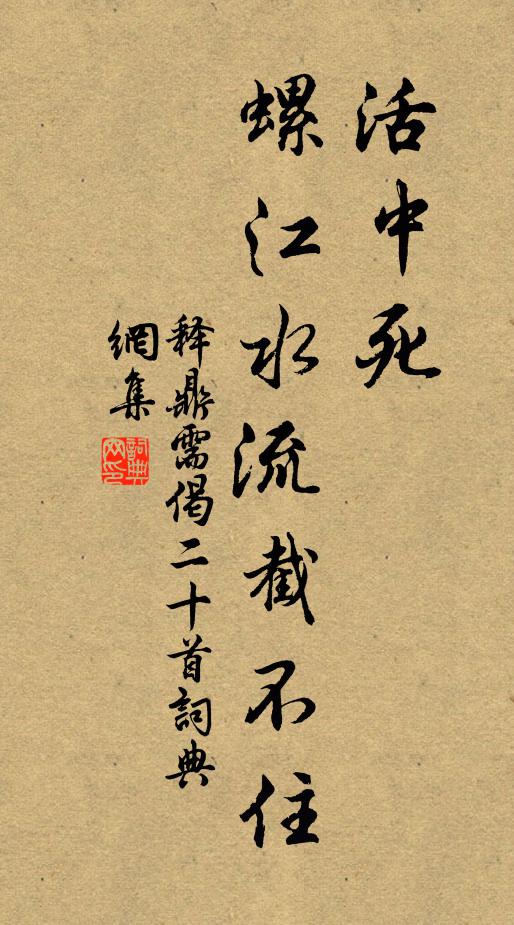 活中死
螺江水流截不住
释鼎需偈二十首詞典
網集
詞典
网印